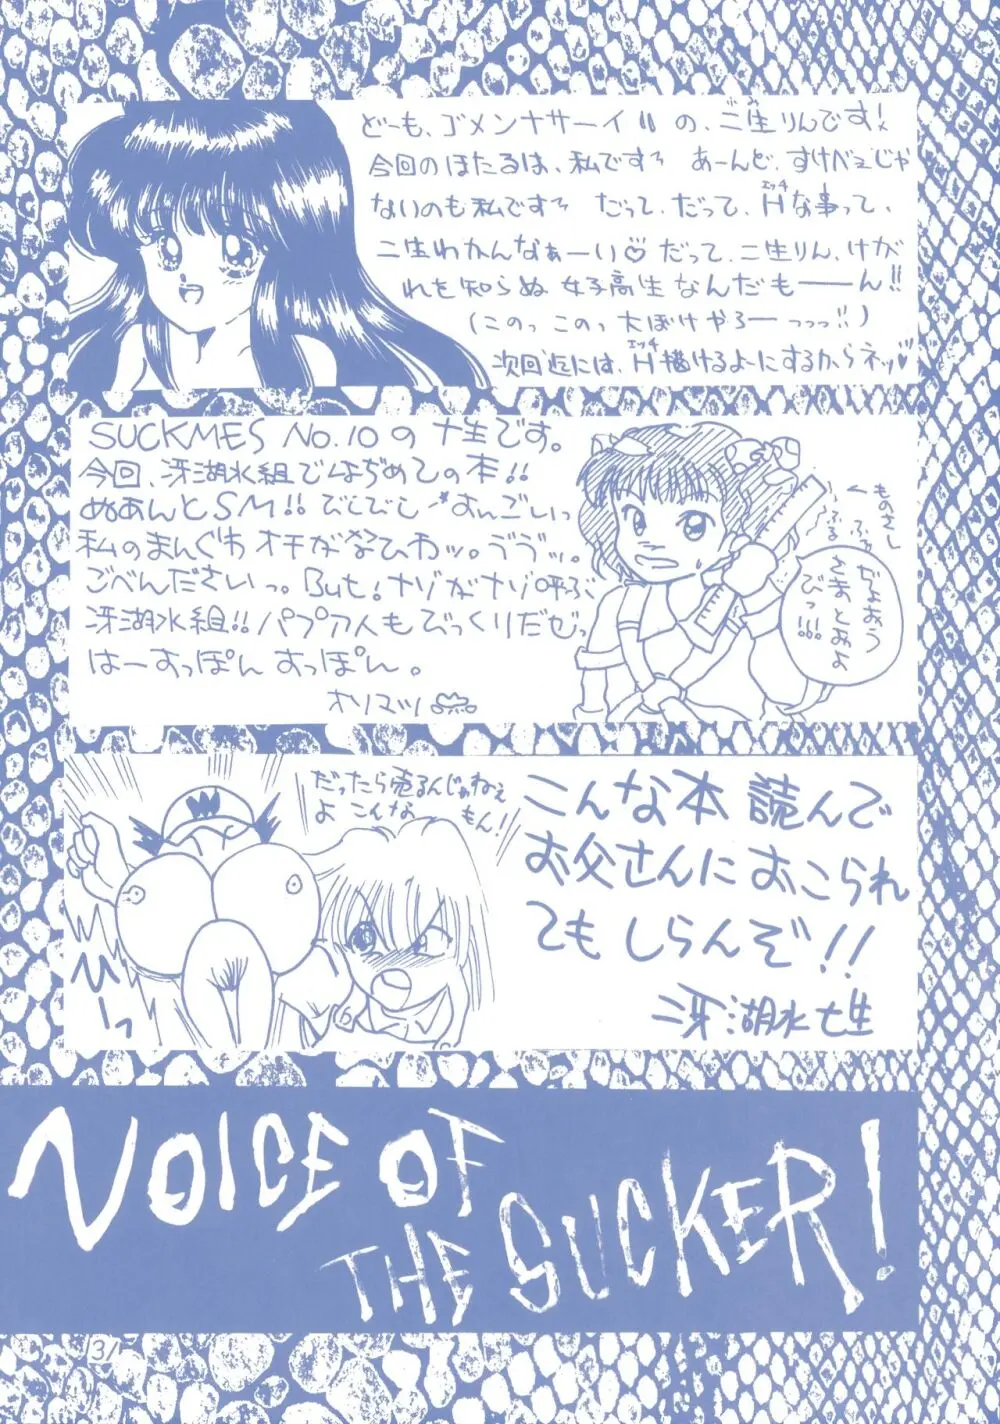 どーも、ゴメンナサーイ!! の、二生りんです!
今回のほたるは、私ですっ あーんど、すけべぇじゃ
ないのも私ですっ だって、だって、Hな事って、
エッチ
二生わかんなぁーい♡だって、二生りん、けが
れを知らぬ 女子高生なんだもーーん!!
(このっ このっ 大ぼけやろーっっっ!!)
次回迄には、H描けるよにするからネッ♥
エッチ
SUCKMES No.10の 十生です。
今回、冴湖水組ではぢめての本!!
ぬあんとSM!! びしびし すんごしぃっ
私のまんぐわ オチがなひわッ。ゔゔッ。
ごべんださいっ。But! ナゾがナゾ呼ぶ
冴湖水組!! パプア人もびっくりだぜっ
はーすっぽん すっぽん。
オソマツ
←ものさし
ぢょおう
さまとおよ
びっ!!!
だったら売るんじゃねぇ
よ こんな もん!
W
こんな本 読んで
お父さんにおこられ
てもしらんぞ!!
冴湖水七生
VOICE OF
THE SUCKER!
31